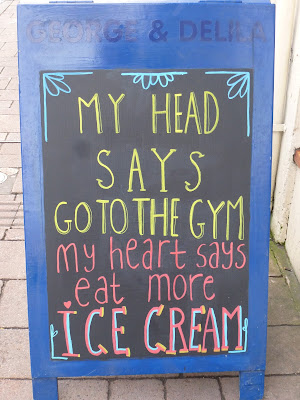 GEORGE & DELILA
MY HEAD
SAYS
GO TO THE GYM
my heart says
eat more
iCE CREAM